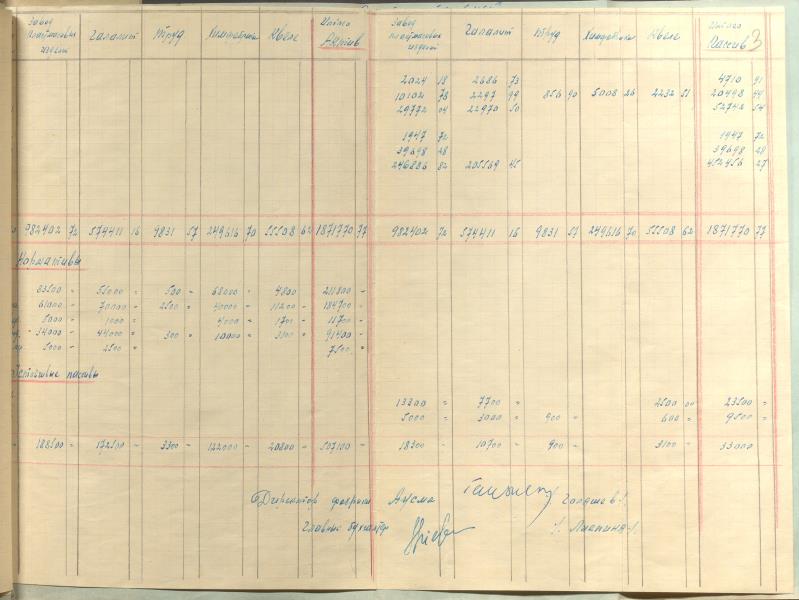 Завод Пластмассовых изделий Галалит Труд Химфабрика Квеле Итого Актив Завод Пластмассовых изделий Галалит Труд Химфабрика Квеле Итого Пассив 3
2024 18 2686 73 4710 91
10102 78 2297 99 856 90 5008 26 2232 51 20498 44
29772 04 22970 50 52742 54
1947 72 1947 72
39698 28 39698 28
246886 82 205569 45 452456 27
982402 72 574411 16 9831 57 249616 70 55508 62 1871770 77 982402 72 574411 16 9831 57 249616 70 55508 62 1871770 77
Нормативы
83500 - 55000 - 500 - 68000 - 4800 - 211800 -
61000 - 70000 - 2500 - 40000 - 11200 - 184700 -
5000 - 1000 - 4000 - 1700 - 11700 -
34000 - 44000 - 300 - 10000 - 3100 - 91400 -
5000 - 2500 - 7500 -
Устойчивые пассивы
13300 = 7700 = 2500 00 23500 =
5000 = 3000 = 900 = 600 = 9500 =
188500 - 172500 - 3300 - 122000 - 20800 - 507100 - 18300 - 10700 - 900 - 3100 - 33000
Директор фабрики Аусма
Главный бухгалтер